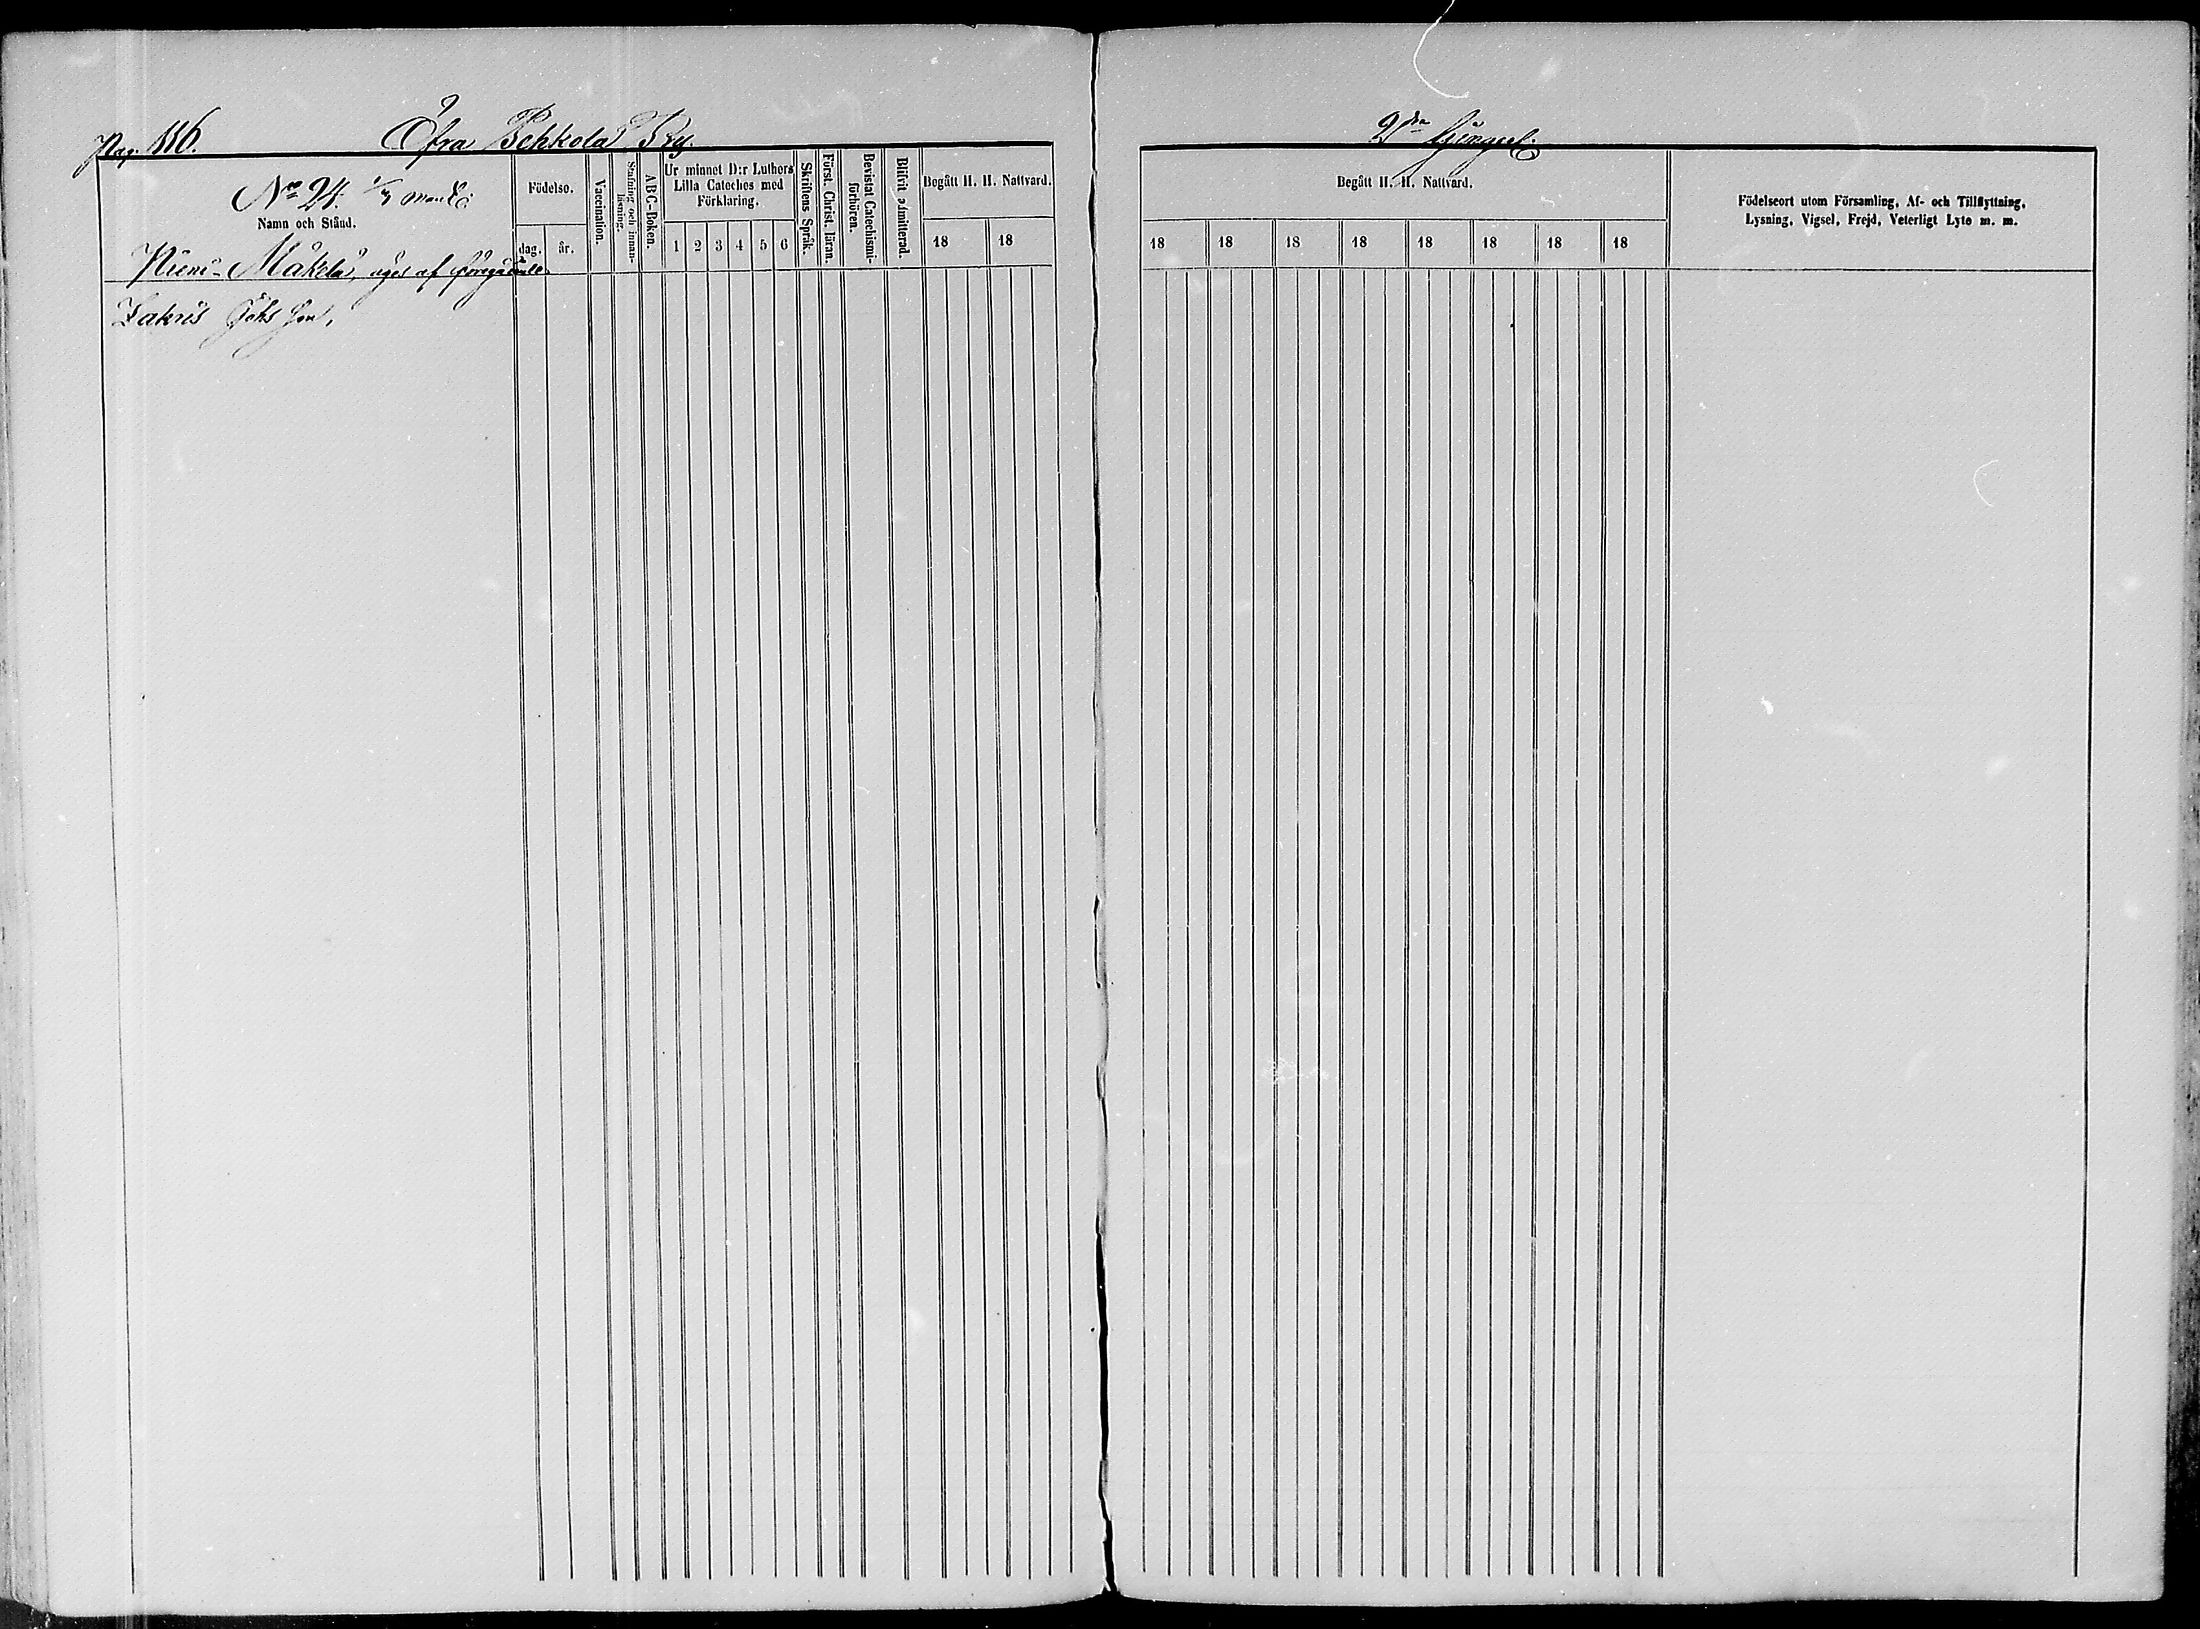 Pag. 116.
Öfra Pehkola By.
2dra
No 24. 1/3 mantl:
Namn och Stånd.
Niemi-Mäkelä, äges af föregående
Zakris Johs Son,
Födelse.
dag. år.
Vaccination.
Stafning och innanläsning.
A B C-Boken.
Ur minnet D:r Luthers
Lilla Cateches med
Förklaring.
1 2 3 4 5 6
Skriftens Språk.
Först. Christ. läran.
Bevistat Catechismi-
förhören.
Blifvit admitterad.
Begått H. H. Nattvard.
18 18
Begått H. H. Nattvard.
18 18 18 18 18 18 18 18
Födelseort utom Församling, Af- och Tillflyttning,
Lysning, Vigsel, Frejd, Veterligt Lyte m. m.